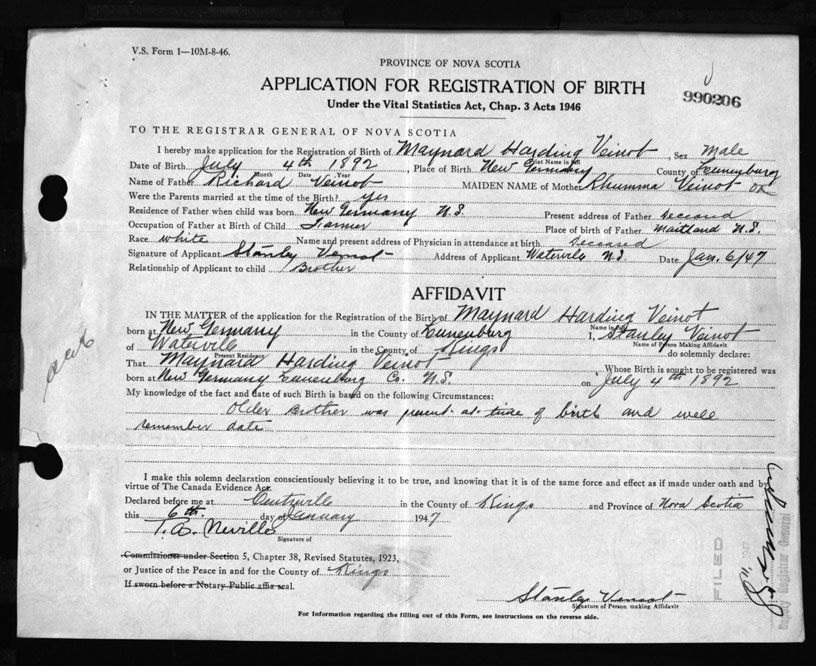 V.S. Form 1—10M-8-46.
PROVINCE OF NOVA SCOTIA
APPLICATION FOR REGISTRATION OF BIRTH
990206
Under the Vital Statistics Act, Chap. 3 Acts 1946
TO THE REGISTRAR GENERAL OF NOVA SCOTIA
I hereby make application for the Registration of Birth of Maynard Harding Veinot, Sex Male
Print Name in full
Date of Birth July 4th 1892, Place of Birth New Germany County of Lunenburg
Month Date Year
Name of Father Richard Veinot MAIDEN NAME of Mother Rhumma Veinot OK
Were the Parents married at the time of the Birth? yes
Residence of Father when child was born New Germany N.S. Present address of Father
Occupation of Father at Birth of Child Farmer Place of birth of Father Maitland N.S.
Race white Name and present address of Physician in attendance at birth
Signature of Applicant Stanley Veinot Address of Applicant Waterville N.S. Date Jan. 6/47
Relationship of Applicant to child Brother
AFFIDAVIT
IN THE MATTER of the application for the Registration of the Birth of Maynard Harding Veinot
Name in full
born at New Germany in the County of Lunenburg I, Stanley Veinot
Name of Person Making Affidavit
of Waterville in the County of Kings do solemnly declare:
Present Residence
That Maynard Harding Veinot Whose Birth is sought to be registered was
born at New Germany Lunenburg Co. N.S. on July 4th 1892
My knowledge of the fact and date of such Birth is based on the following Circumstances:
Older Brother was present at time of birth and well
remember date
I make this solemn declaration conscientiously believing it to be true, and knowing that it is of the same force and effect as if made under oath and by
virtue of The Canada Evidence Act.
Declared before me at Centreville in the County of Kings and Province of Nova Scotia
this 6th. day of January 1947
T.A. Neville
Signature of
Commissioner under Section 5, Chapter 38, Revised Statutes, 1923,
or Justice of the Peace in and for the County of Kings
If sworn before a Notary Public affix seal.
Stanley Veinot
Signature of Person making Affidavit
For Information regarding the filling out of this Form, see instructions on the reverse side.
FILED
Deputy Registrar General